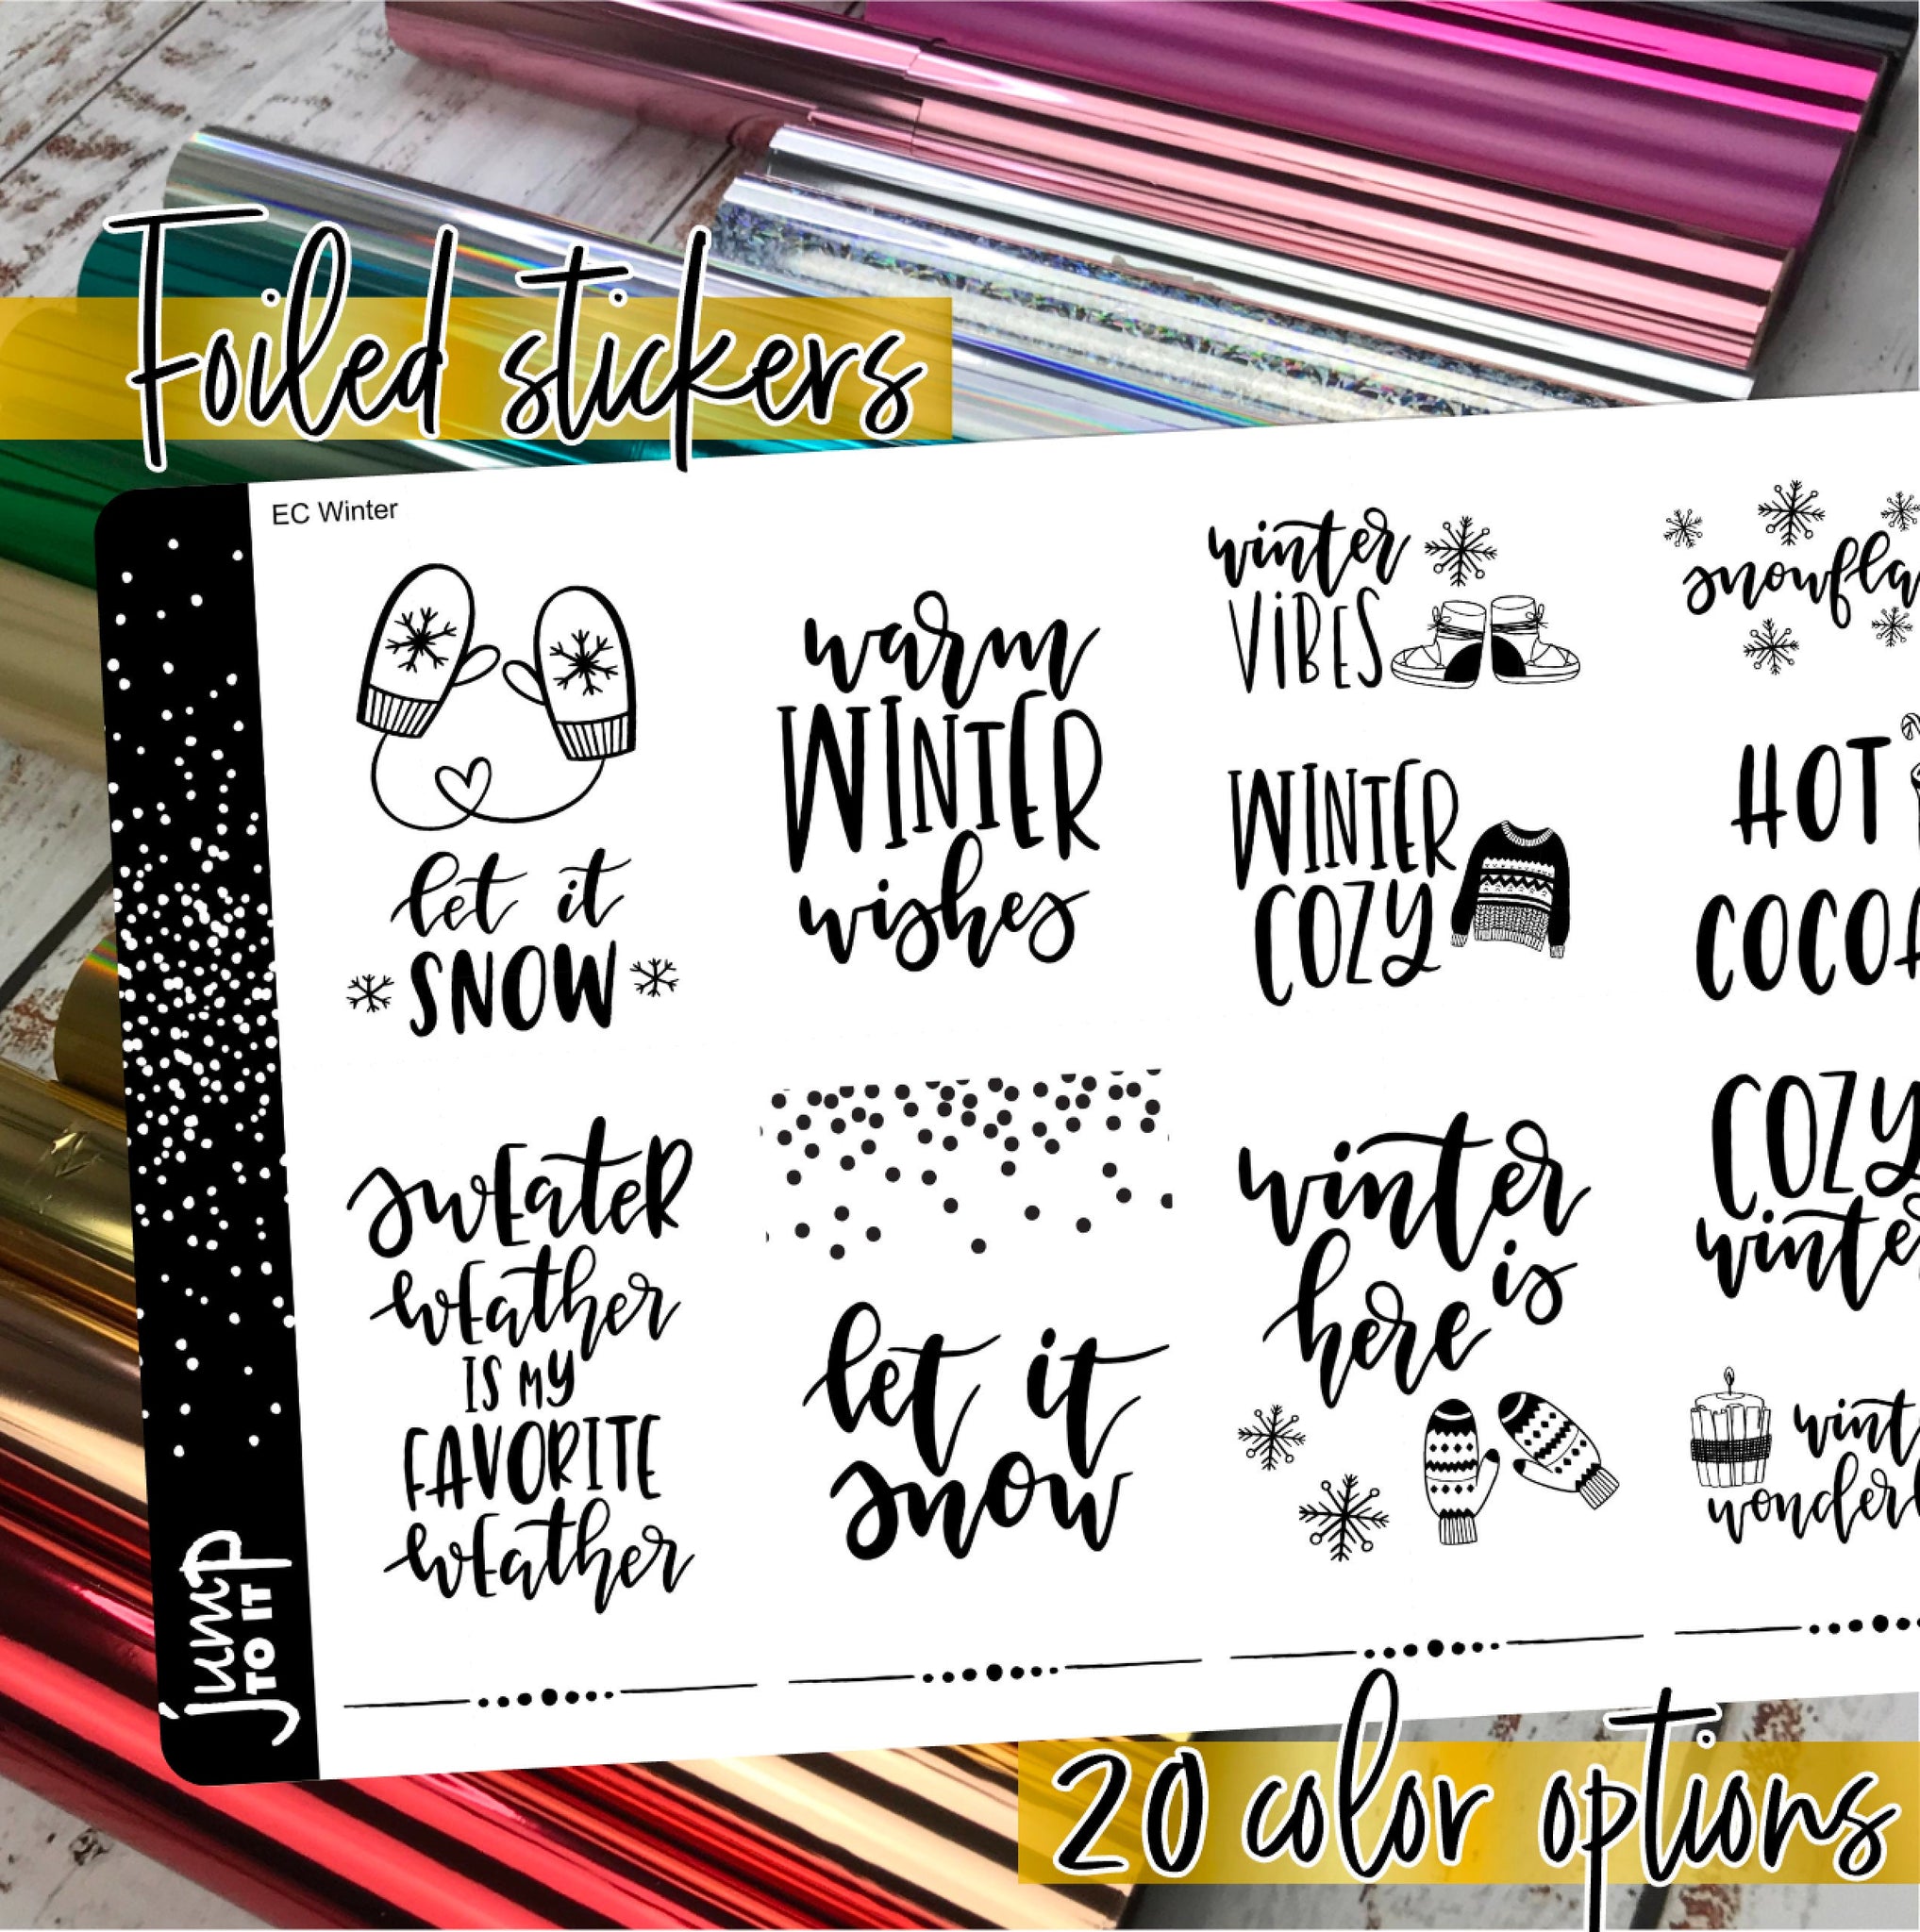 Foiled stickers
EC Winter
let it
SNOW
warm
WINTER
wishes
winter
ViBES
WINTER
COZY
HOT
sweater
weather
IS MY
FAVORITE
weather
let it
snow
winter
is
here
COZY
jump
TO IT
20 color options